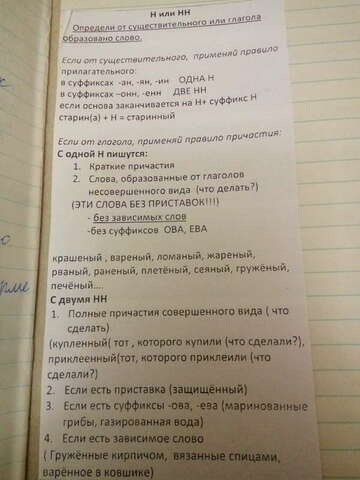 Н или НН
Определи от существительного или глагола
Образовано слово.
Если от существительного, применяй правило
прилагательного:
в суффиксах -ан, -ян, -ин ОДНА Н
в суффиксах –онн, -енн ДВЕ НН
если основа заканчивается на Н+ суффикс Н
старин(а) + Н = старинный
Если от глагола, применяй правило причастия:
С одной Н пишутся:
1. Краткие причастия
2. Слова, образованные от глаголов
несовершенного вида (что делать?)
(ЭТИ СЛОВА БЕЗ ПРИСТАВОК!!!)
- без зависимых слов
-без суффиксов ОВА, ЕВА
крашеный , вареный, ломаный, жареный,
рваный, раненый, плетёный, сеяный, гружёный,
печёный....
С двумя НН
1. Полные причастия совершенного вида ( что
сделать)
(купленный( тот , которого купили (что сделали?),
приклеенный(тот, которого приклеили (что
сделали?)
2. Если есть приставка (защищённый)
3. Если есть суффиксы -ова, -ева (маринованные
грибы, газированная вода)
4. Если есть зависимое слово
( Гружённые кирпичом, вязанные спицами,
варённое в ковшике)